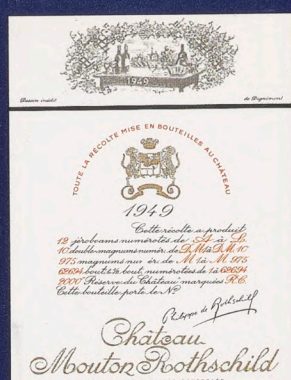 1949
Dessin inédit de Dignimont
TOUTE LA RÉCOLTE MISE EN BOUTEILLES AU CHÂTEAU
1949
Cette récolte a produit
12 jéroboams numérotés de A à L.
10 double-magnums numér. de D.M.1 à D.M.10
975 magnums nur ér. de M 1 à M. 975
62694 bout. & ½ bout. numérotées de 1 à 62694
2000 "Réserve du Château" marquées R.C.
Cette bouteille porte le Nº
Philippe de Rothschild
Château
Mouton Rothschild